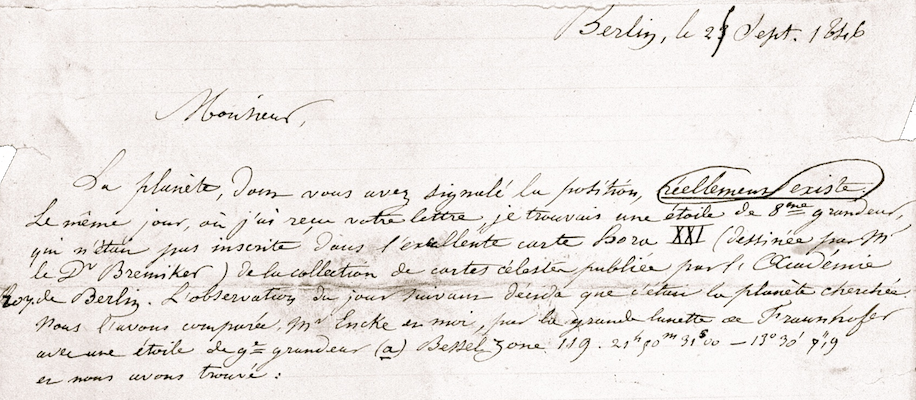 Berlin, le 25 Sept. 1846
Monsieur,
La planète, dont vous avez signalé la position, réellement existe.
Le même jour, où j'ai reçu votre lettre, je trouvais une étoile de 8me grandeur,
qui n'était pas inscrite dans l'excellente carte Hora XXI (dessinée par Mr
le Dr Bremiker) de la collection de cartes célestes publiée par l'Académie
Roy. de Berlin. L'observation du jour suivant décida que c'était la planète cherchée.
Nous l'avons comparée, Mr Encke et moi, par la grande lunette de Fraunhofer
avec une étoile de 9e grandeur (a) Bessel zone 119. 21h 50m 31s00 – 13° 30'
et nous avons trouvé :